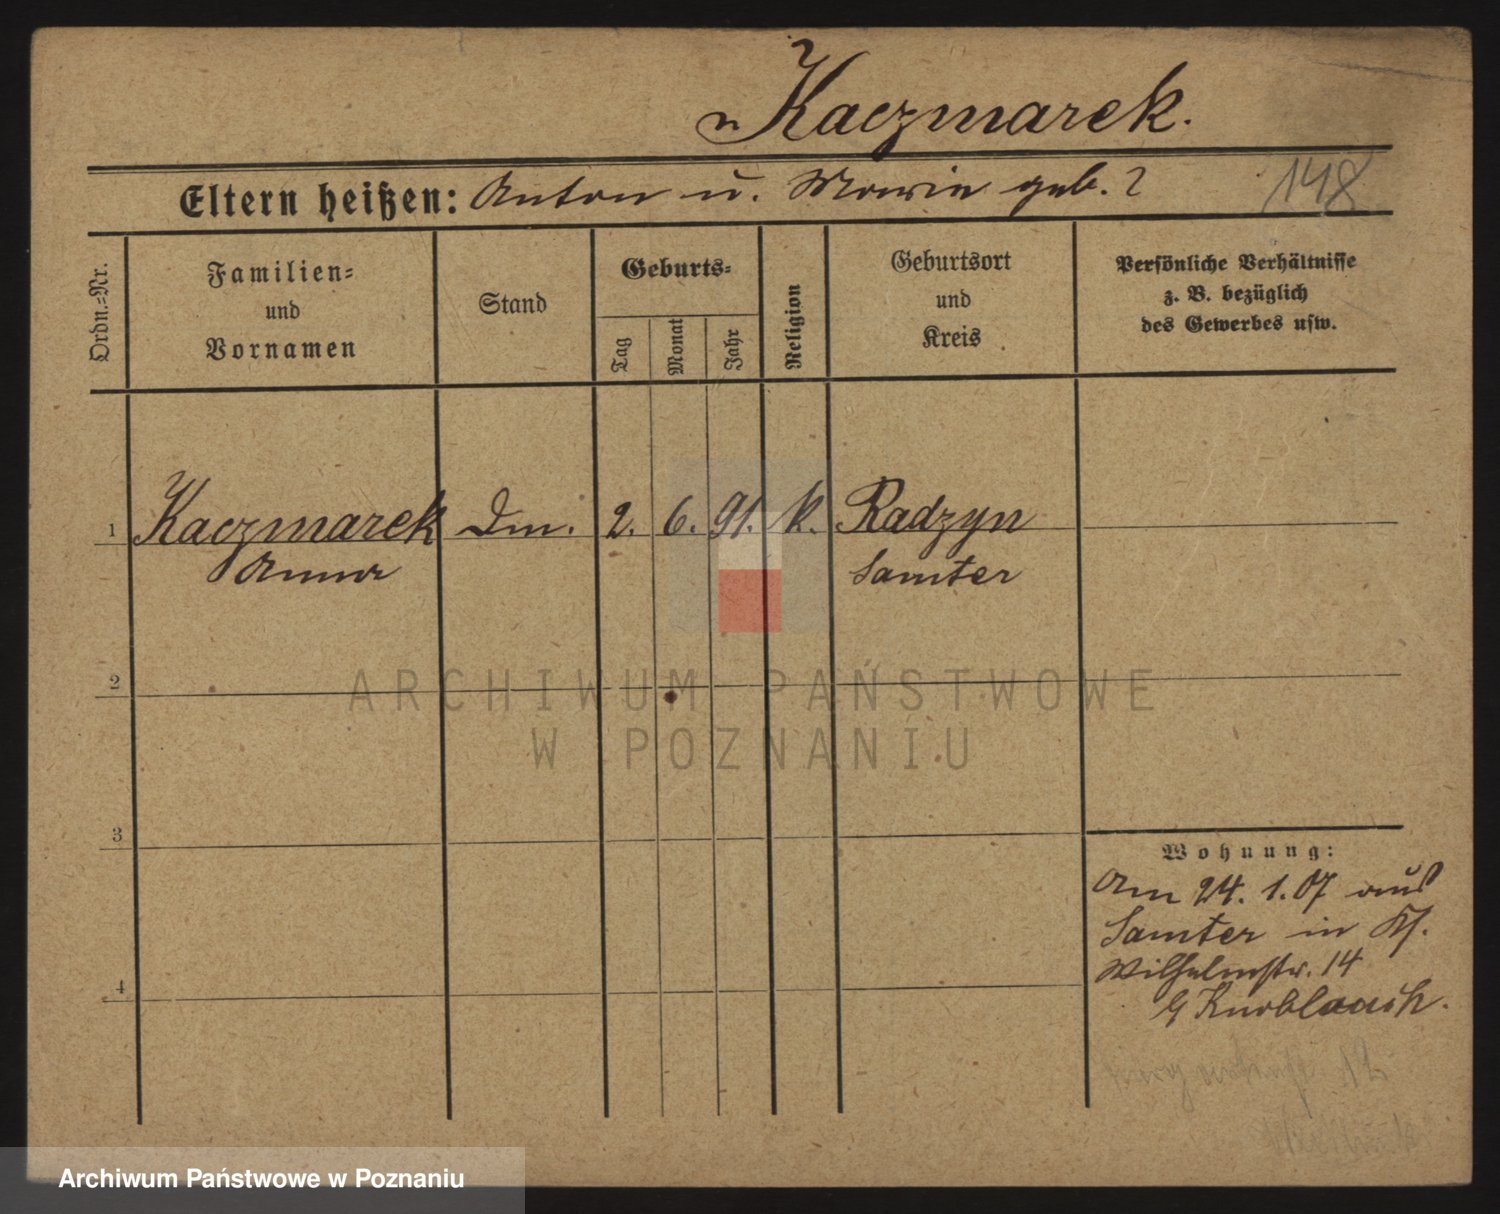 Kaczmarek.
Eltern heißen: Anton u. Maria geb. ?
148
Ordn.=Nr.
Familien=
und
Vornamen
Stand
Geburts=
Tag
Monat
Jahr
Religion
Geburtsort
und
Kreis
Persönliche Verhältnisse
z. B. bezüglich
des Gewerbes usw.
1 Kaczmarek Dm. 2. 6. 91. k. Radzyn
Anna Samter
2
ARCHIWUM PAŃSTWOWE
W POZNANIU
3
Wohnung:
Am 24. 1. 07 aus
Samter in
Wilhelmstr. 14
Knoblauch.
4
Archiwum Państwowe w Poznaniu